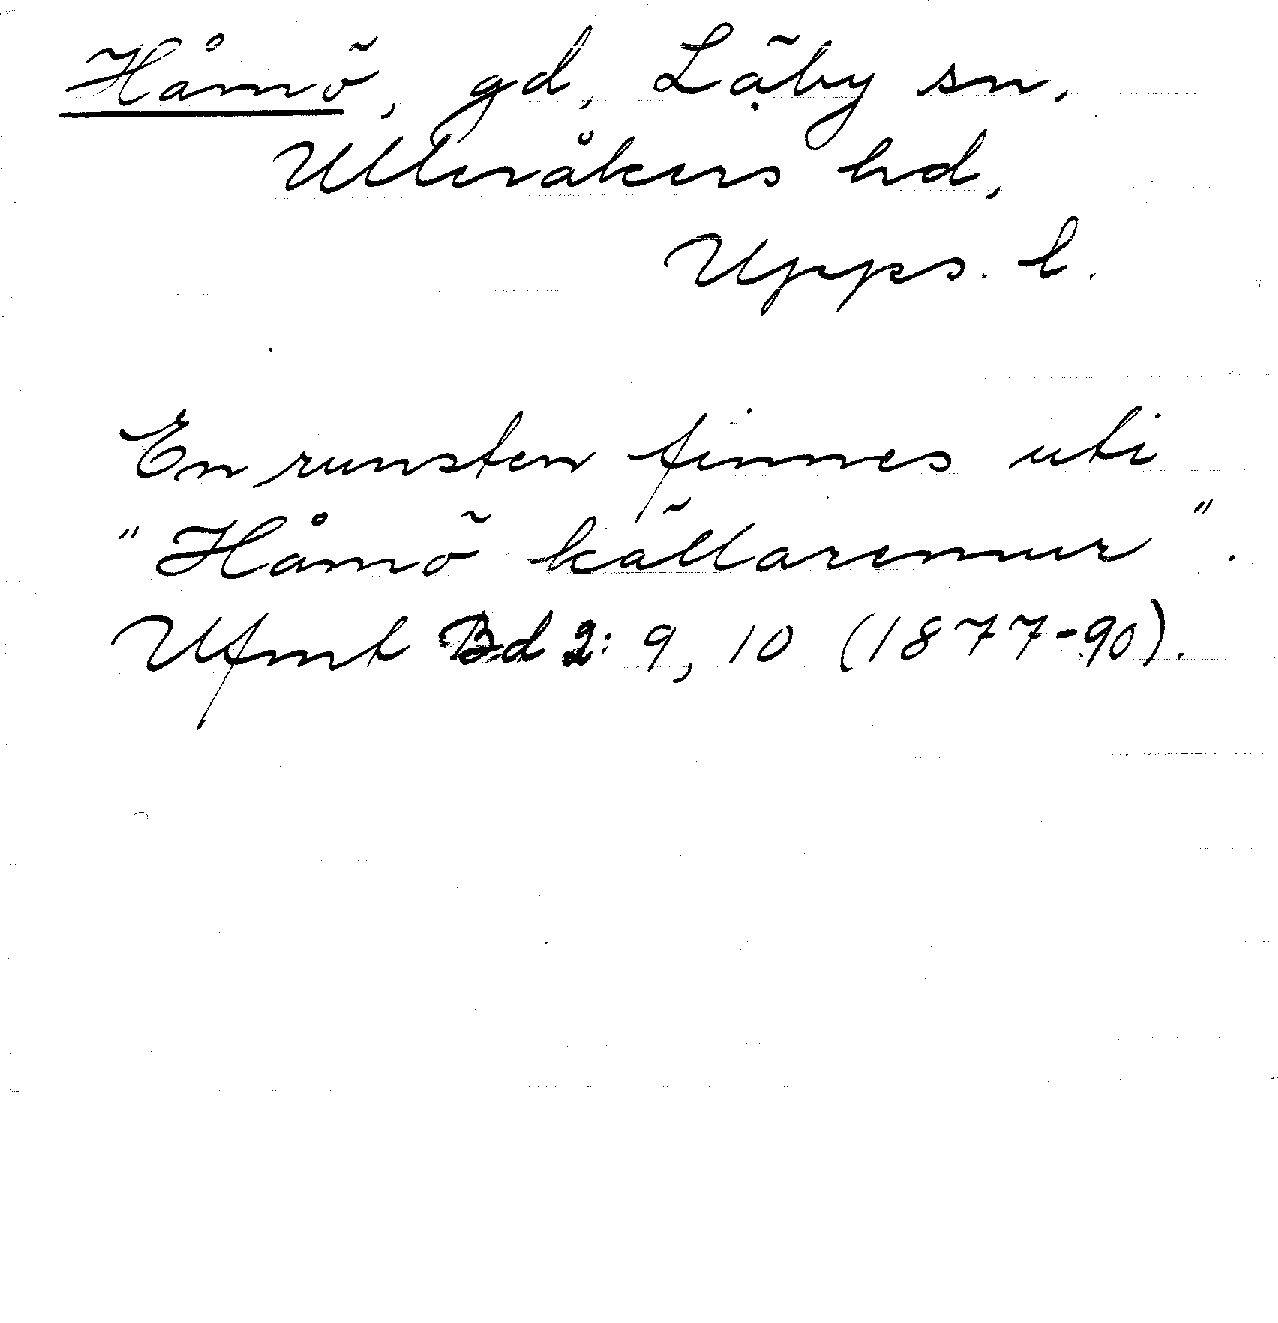 Håmö, gd, Läby sn,
Ulleråkers hd,
Upps. l.
En runsten finnes uti
"Håmö källaremur".
Ufmt Bd 2: 9, 10 (1877-90).